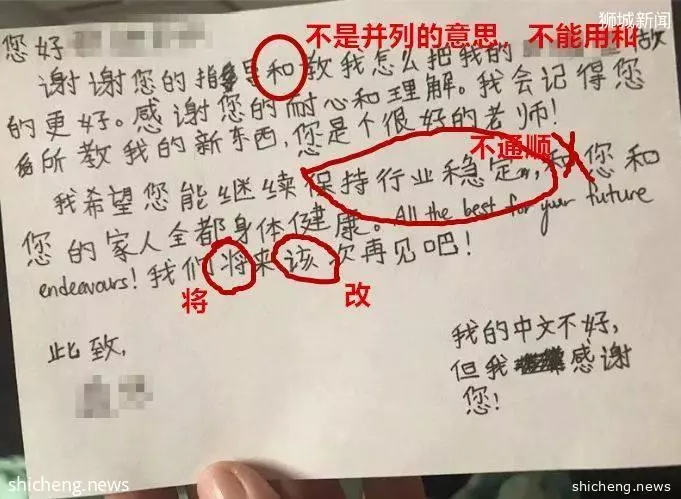 狮城新闻
您好
不是并列的意思 不能用和
谢谢您的指导和教我怎么把我的 做
的更好。感谢您的耐心和理解。我会记得您
所教我的新东西,您是个很好的老师!
不通顺
我希望您能继续保持行业稳定,和您和
您的家人全都身体健康。All the best for your future
endeavours! 我们将来该次再见吧!
将 改
此致,
我的中文不好,
但我感谢
您!
shicheng.news
shicheng.news